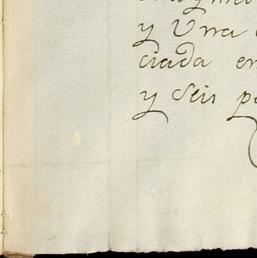 y Una
ciada en
y seis